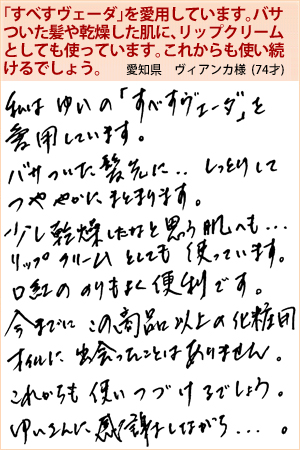 「すべすヴェーダ」を愛用しています。バサ
ついた髪や乾燥した肌に、リップクリーム
としても使っています。これからも使い続
けるでしょう。 愛知県 ヴィアンカ様 (74才)
私は ゆいの「すべすヴェーダ」を
愛用しています。
バサついた髪先に・・ しっとりして
つややかにまとまります。
少し乾燥したなと思う肌へも・・・
リップクリーム としても 使っています。
口紅の のりもよく便利です。
今までに この商品以上の化粧用
オイルに 出会ったことはありません。
これからも 使いつづけるでしょう。
ゆいさんに 感謝しながら・・・。